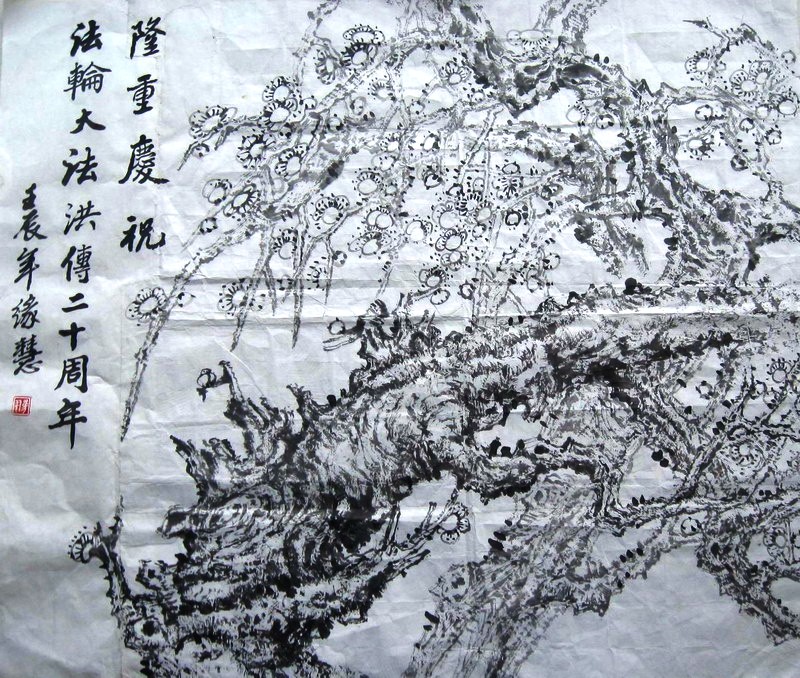 隆重慶祝
法輪大法洪傳二十周年
壬辰年缘慧